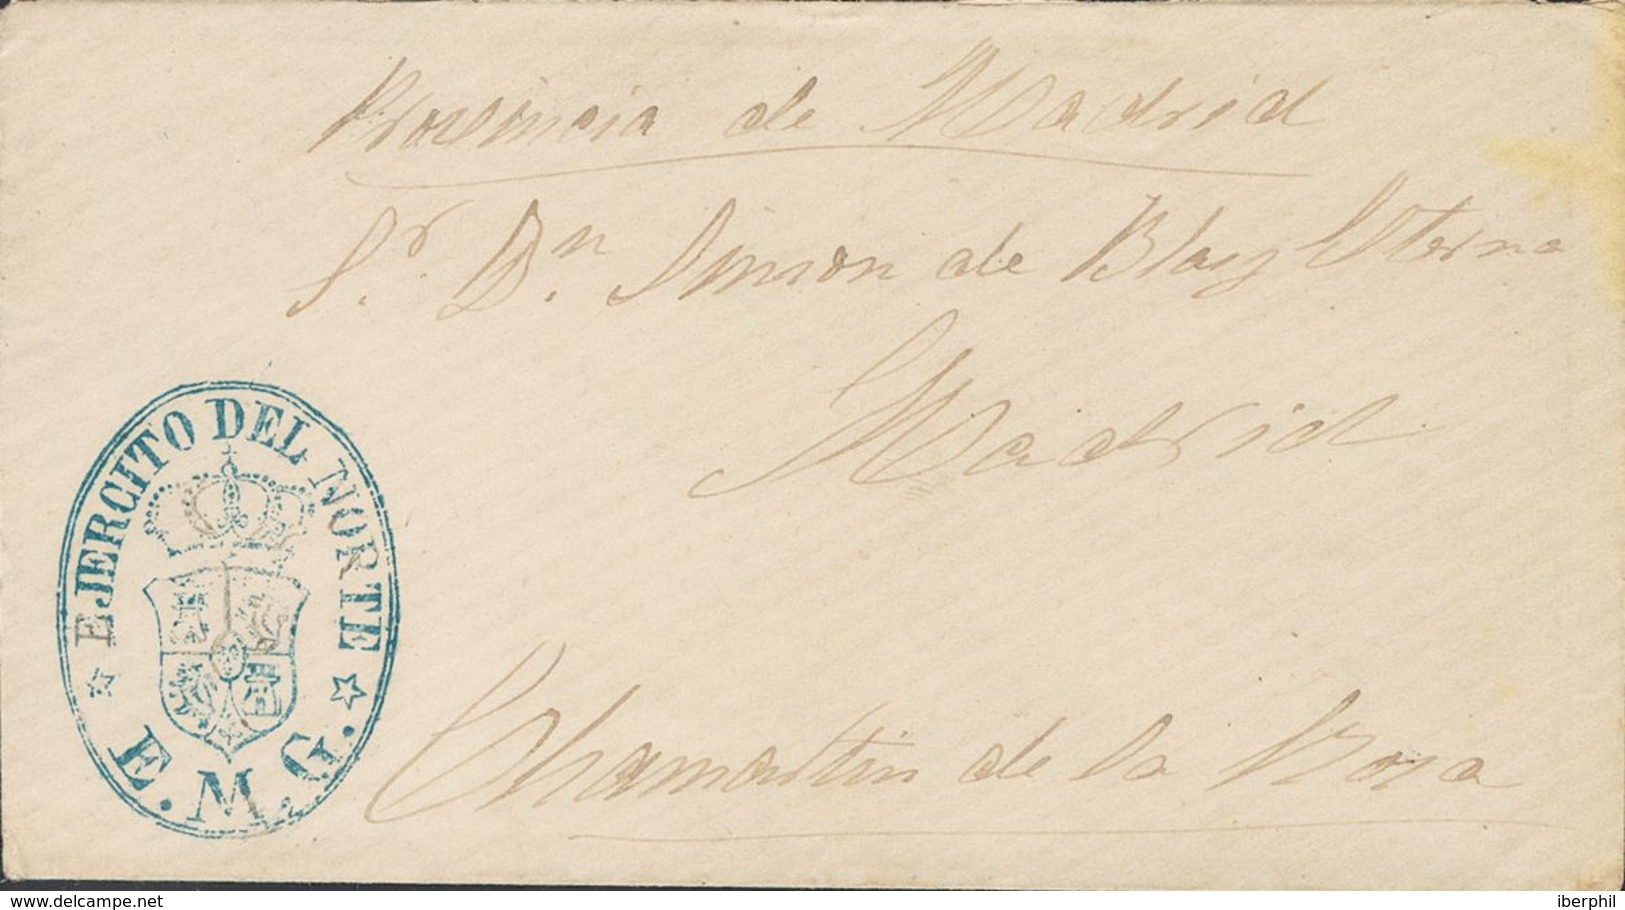 Provincia de Madrid
Sr. Dn. Simon de Blas y
Madrid
EJERCITO DEL NORTE
E. M. G.
Chamartin de la Rosa
delcampe.net
iberphil